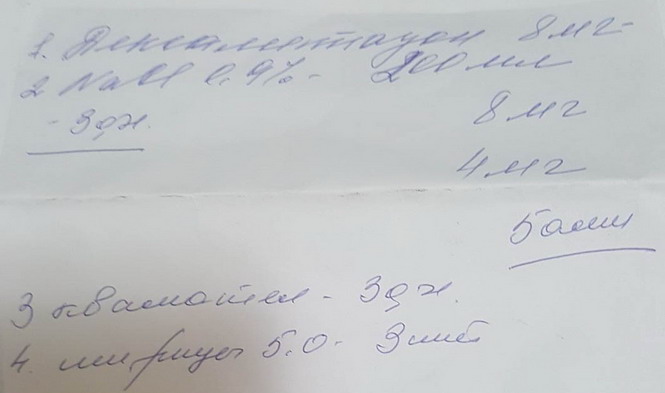 1. Дексаметазон 8 мг-
2 NaCl 0,9% - 200 мл
- 3 дн.
8 мг
4 мг
5 амп
3 квамател - 3 дн.
4. шприцы 5.0 - 3 шт